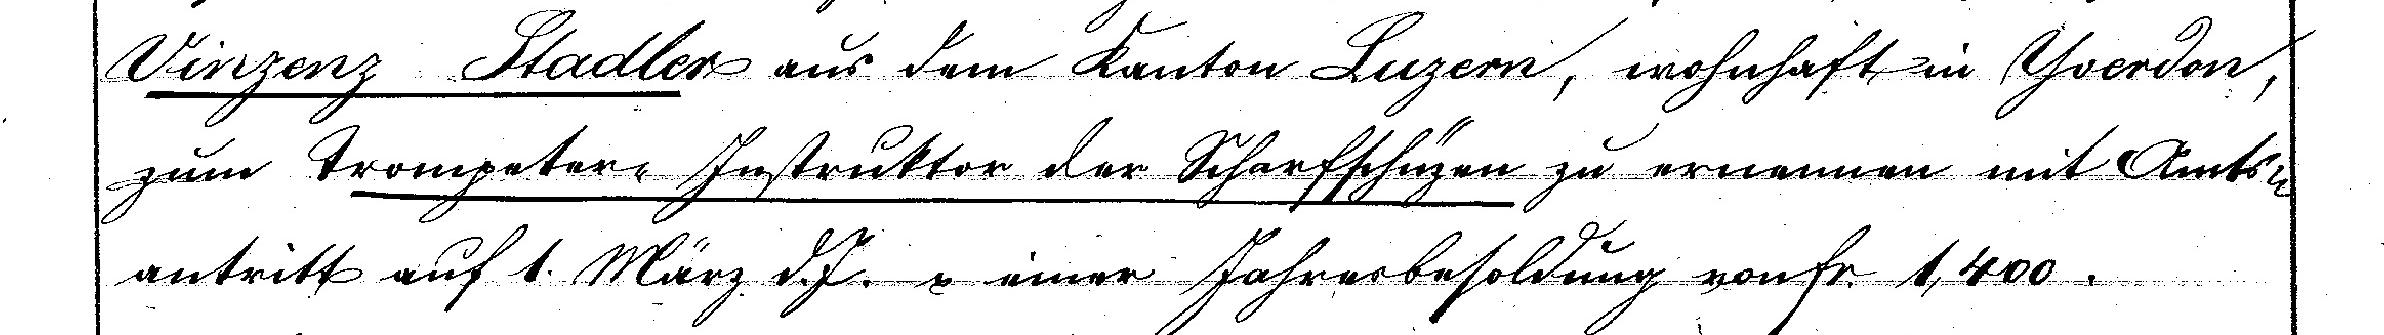 Vinzenz Stadler aus dem Kanton Luzern, wohnhaft in Yverdon,
zum Trompeter- Instruktor der Scharfschüzen zu ernennen mit Amts-
antritt auf 1. März d. J. & einer Jahresbesoldung von fr. 1,400.